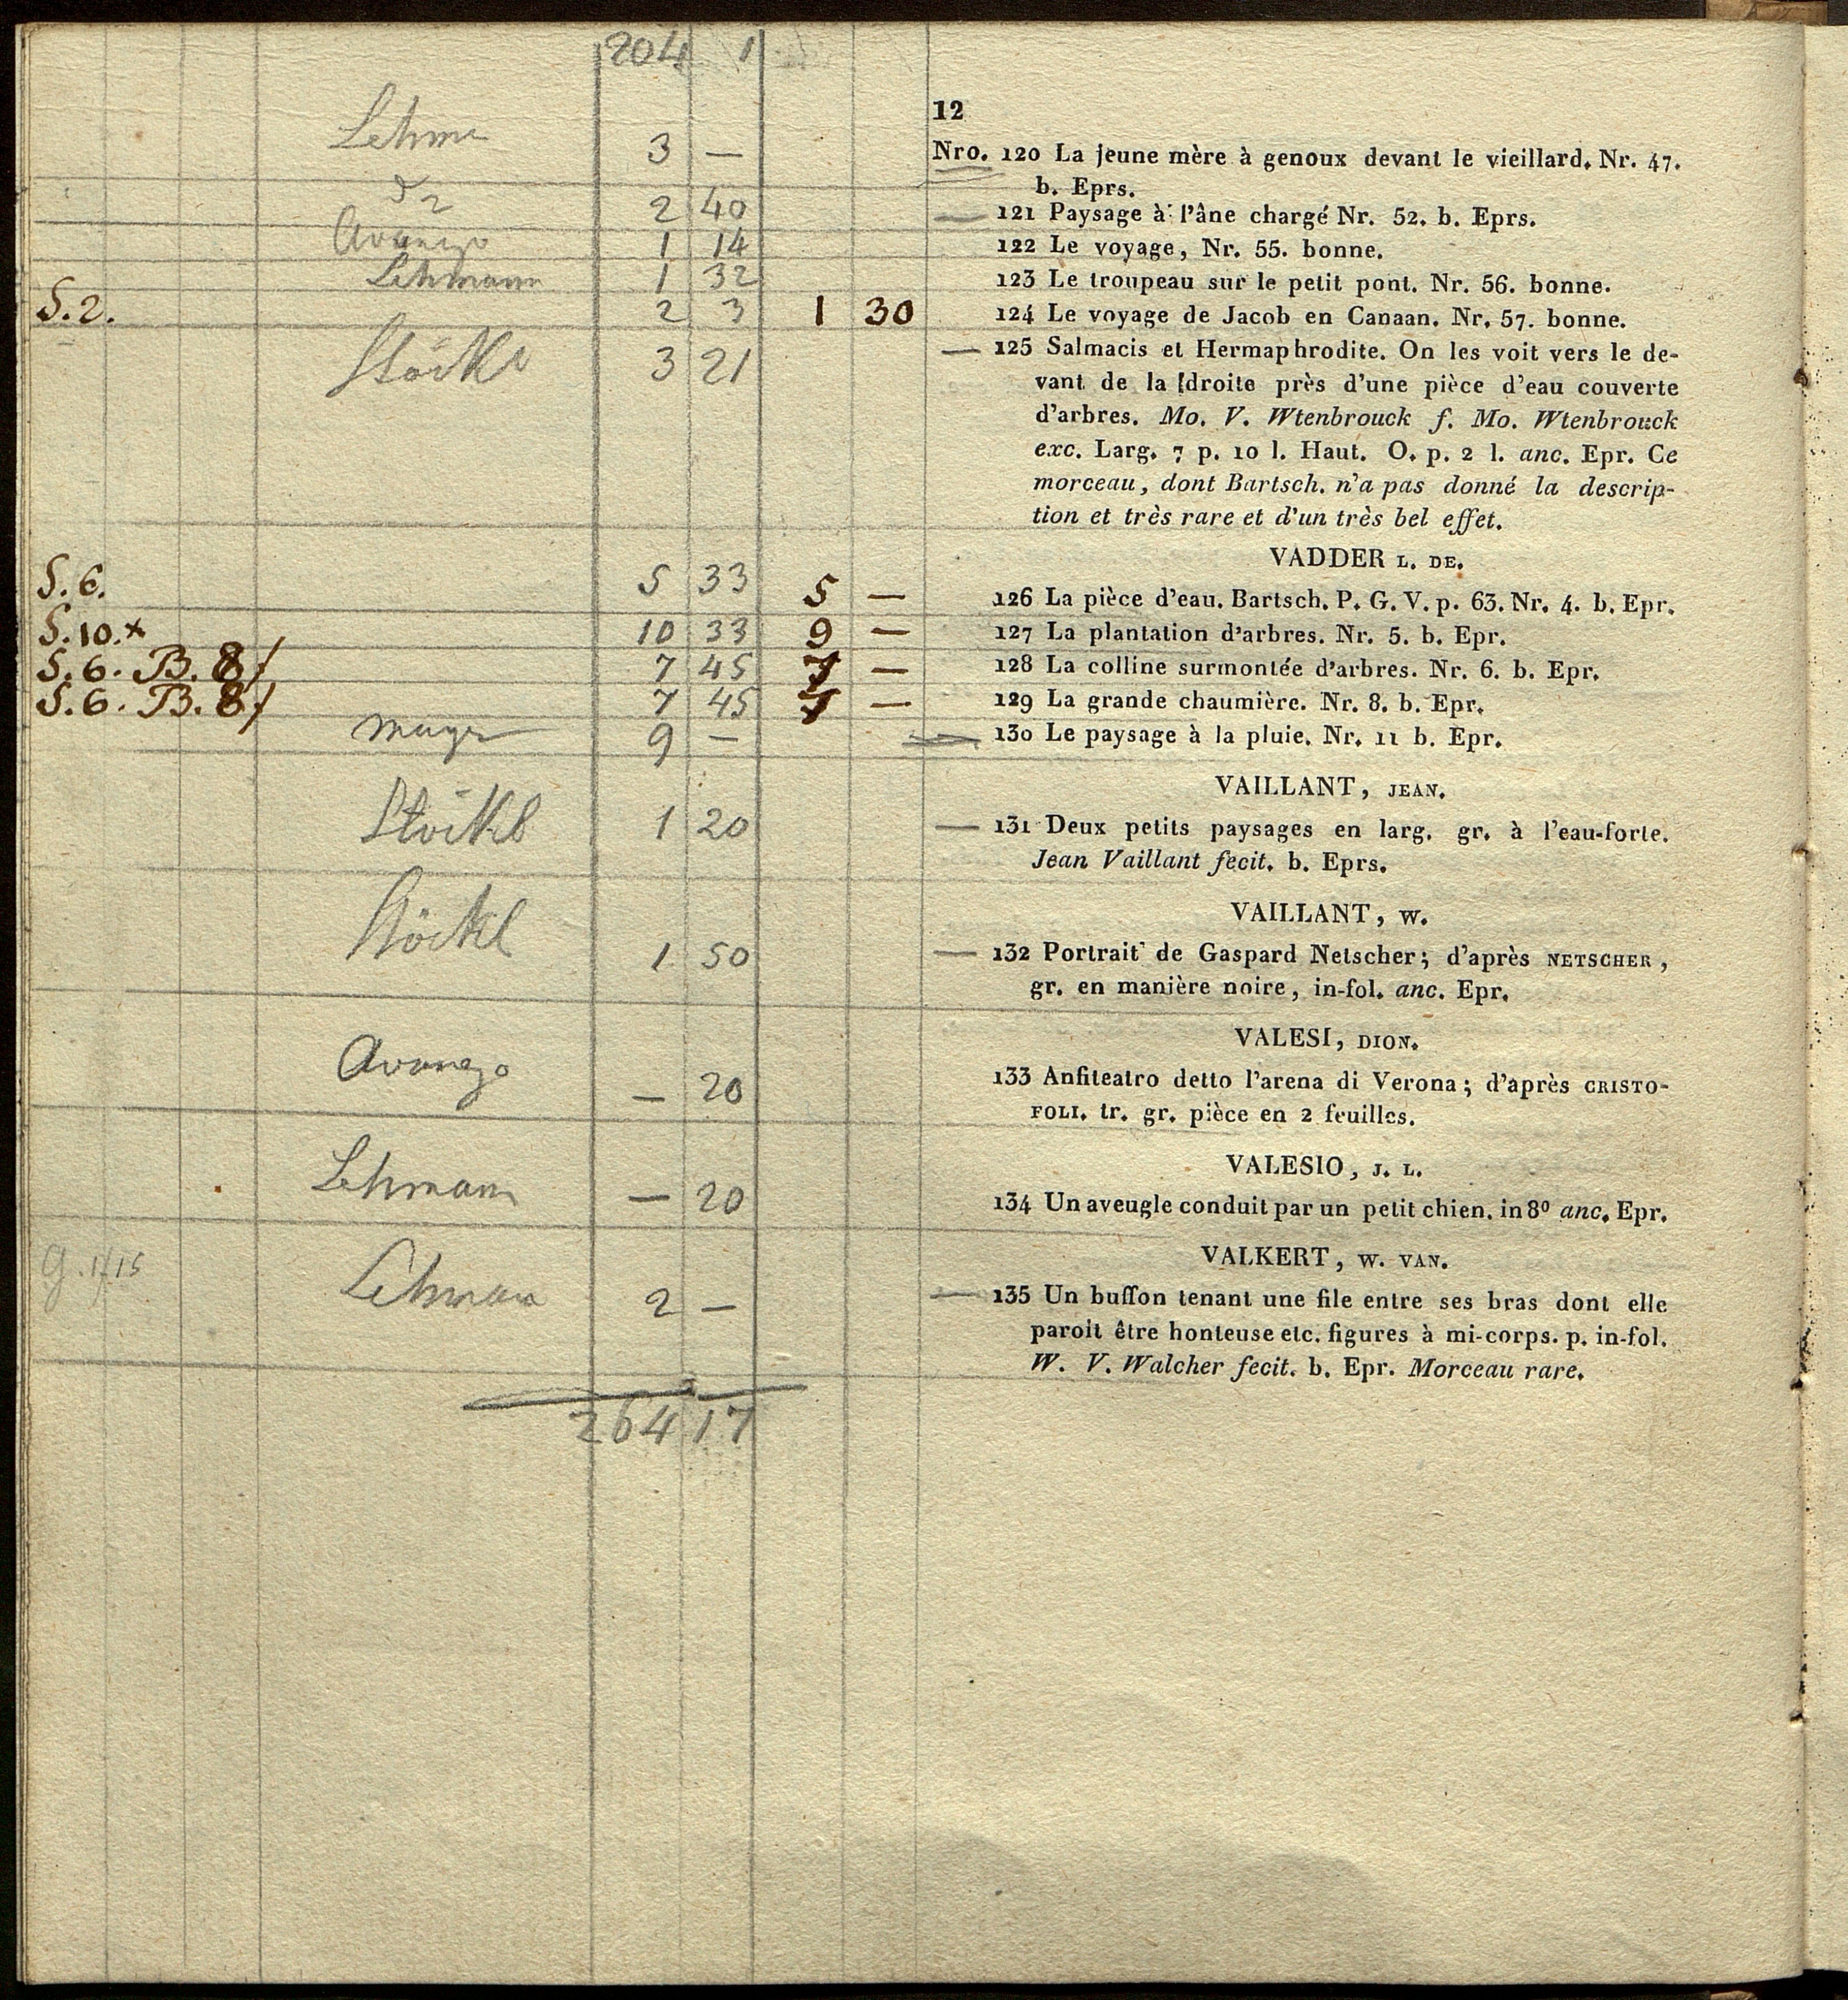 204 1
12
Lehm 3 — Nro. 120 La jeune mère à genoux devant le vieillard. Nr. 47.
b. Eprs.
2 40 — 121 Paysage à l'âne chargé Nr. 52. b. Eprs.
Avanzo 1 14 122 Le voyage, Nr. 55. bonne.
Lehmann 1 32 123 Le troupeau sur le petit pont. Nr. 56. bonne.
S. 2. 2 3 1 30 124 Le voyage de Jacob en Canaan. Nr. 57. bonne.
Stöckl 3 21 — 125 Salmacis et Hermaphrodite. On les voit vers le de-
vant de la droite près d'une pièce d'eau couverte
d'arbres. Mo. V. Wtenbrouck f. Mo. Wtenbrouck
exc. Larg. 7 p. 10 l. Haut. O. p. 2 l. anc. Epr. Ce
morceau, dont Bartsch. n'a pas donné la descrip-
tion et très rare et d'un très bel effet.
VADDER L. DE.
S. 6. 5 33 5 — 126 La pièce d'eau. Bartsch. P. G. V. p. 63. Nr. 4. b. Epr.
S. 10. x 10 33 9 — 127 La plantation d'arbres. Nr. 5. b. Epr.
S. 6. B. 8/ 7 45 — 128 La colline surmontée d'arbres. Nr. 6. b. Epr.
S. 6. B. 8/ 7 45 — 129 La grande chaumière. Nr. 8. b. Epr.
Mayer 9 — 130 Le paysage à la pluie. Nr. 11 b. Epr.
VAILLANT, JEAN.
Stöckl 1 20 — 131 Deux petits paysages en larg. gr. à l'eau-forte.
Jean Vaillant fecit. b. Eprs.
VAILLANT, W.
Stöckl 1 50 — 132 Portrait de Gaspard Netscher; d'après NETSCHER,
gr. en manière noire, in-fol. anc. Epr.
VALESI, DION.
Avanzo — 20 133 Anfiteatro detto l'arena di Verona; d'après CRISTO-
FOLI. tr. gr. pièce en 2 feuilles.
VALESIO, J. L.
Lehmann — 20 134 Un aveugle conduit par un petit chien. in 8º anc. Epr.
VALKERT, W. VAN.
Lehman 2 — — 135 Un buffon tenant une file entre ses bras dont elle
paroit être honteuse etc. figures à mi-corps. p. in-fol.
W. V. Walcher fecit. b. Epr. Morceau rare.
264 17